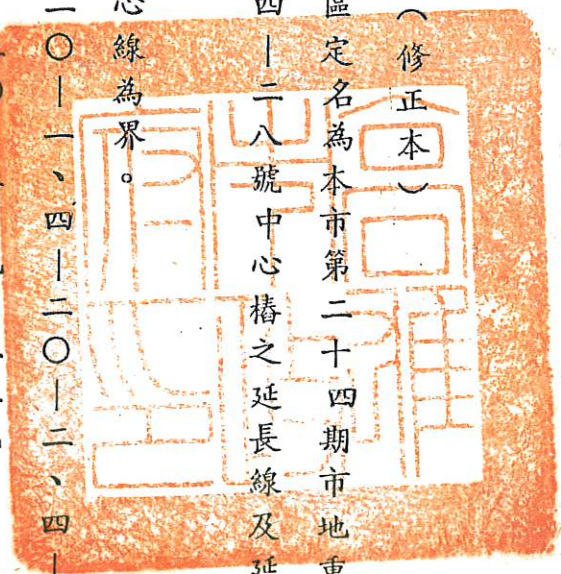 （修正本）
區定名為本市第二十四期市地重
四—二八號中心樁之延長線及延
心線為界。
二〇—一、四—二〇—二、四—
高雄市政府印